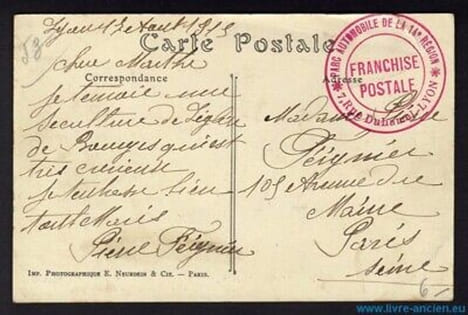 Lyon 13 Aout 1915
Carte Postale
Correspondance
Adresse
PARC AUTOMOBILE DE LA 14e RÉGION
FRANCHISE
POSTALE
7, Rue Duhamel, LYON
Chere Marthe
je tenvoie une
sculture de
de Bourges qui est
tres curieuse
je tembrasse bien
ton Maris
Pierre Peignier
Madame
Peignier
105 Avenue du
Maine
Paris
Seine
IMP. PHOTOGRAPHIQUE E. NEURDEIN & CIE. — PARIS.
6-
www.livre-ancien.eu